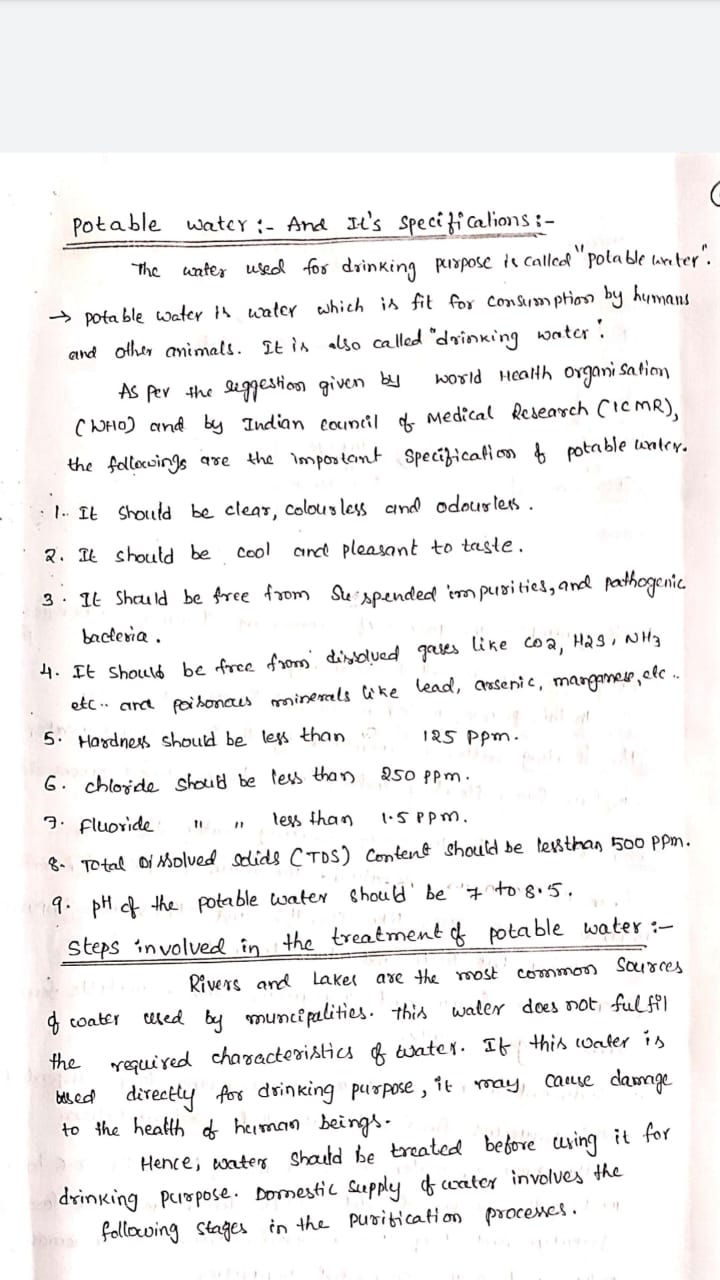 Potable water :- And It's Specifications :-
The water used for drinking purpose is called "potable water".
→ potable water is water which is fit for consumption by humans
and other animals. It is also called "drinking water".
As per the suggestion given by world Health organisation
(WHO) and by Indian council of Medical Research (ICMR),
the followings are the important specification of potable water.
1. It should be clear, colourless and odourless.
2. It should be cool and pleasant to taste.
3. It should be free from Suspended impurities, and pathogenic
bacteria.
4. It should be free from dissolved gases like CO2, H2S, NH3
etc.. and poisonous minerals like lead, arsenic, manganese, etc..
5. Hardness should be less than 125 ppm.
6. chloride should be less than 250 ppm.
7. Fluoride " " less than 1.5 ppm.
8. Total Dissolved solids (TDS) Content should be lessthan 500 ppm.
9. pH of the potable water should be 7 to 8.5.
Steps involved in the treatment of potable water :-
Rivers and Lakes are the most common Sources
of water used by muncipalities. this water does not fulfil
the required characteristics of water. If this water is
used directly for drinking purpose, it may cause damage
to the health of human beings.
Hence, water should be treated before using it for
drinking purpose. Domestic supply of water involves the
following stages in the purification processes.